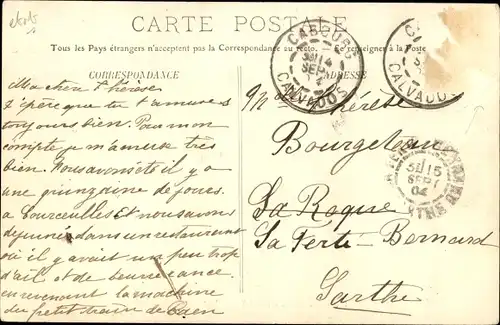 CARTE POSTALE
Tous les Pays étrangers n'acceptent pas la Correspondance au recto. Se renseigner à la Poste
CORRESPONDANCE
ADRESSE
CABOURG
14
SEPT
04
CALVADOS
CALVADOS
15
SEPT
04
SARTHE
Ma chère Thérèse
J'espère que tu t'amuses
toujours bien. Pour mon
compte je m'amuse très
bien. Nous avons été il y
a une quinzaine de jours
a Courseulles et nous avons
déjeuné dans un restaurant
où il y avait un peu trop
d'ail et de beurre rance.
en revenant la machine
du petit train de Caen
Thérèse
Bourgeteau
La Roque
La Ferté-Bernard
Sarthe